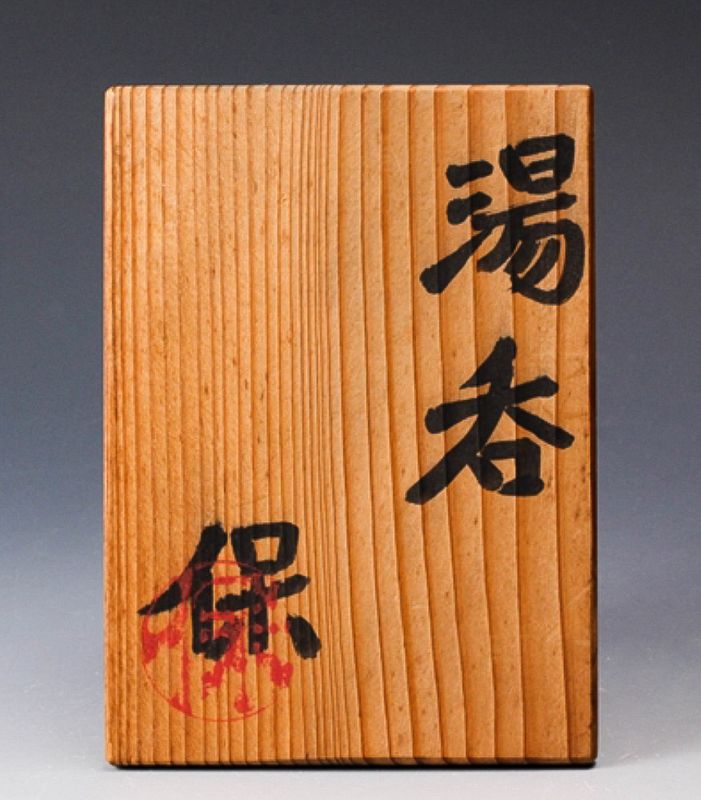 湯呑
保